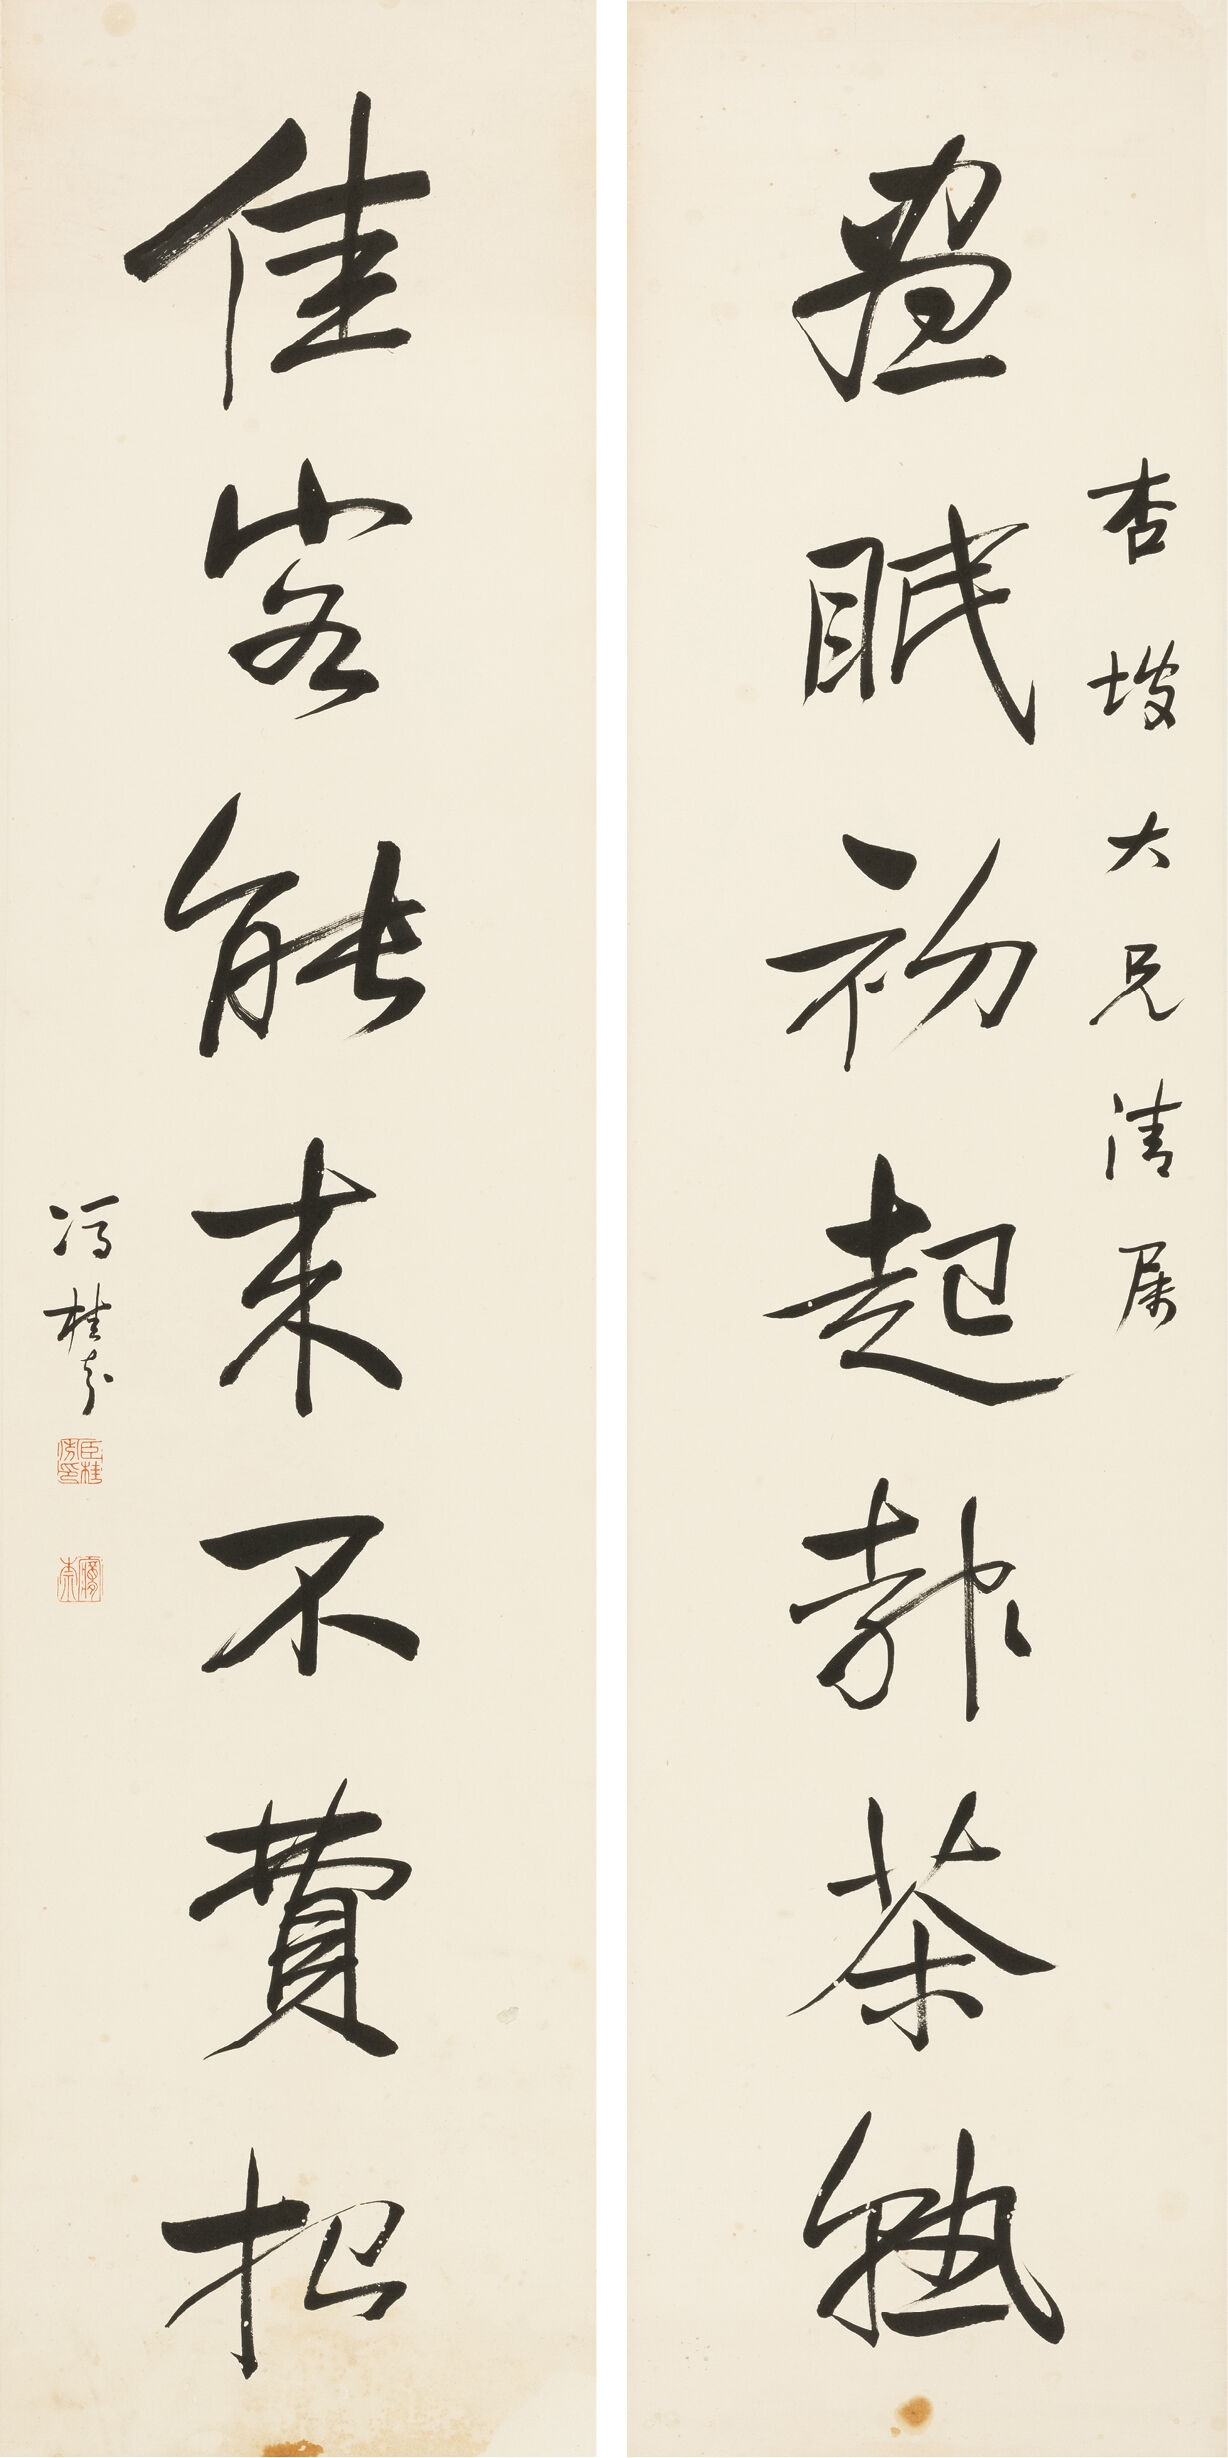 杏坡大兄清属
晝眠初起報茶熟
佳客能来不費招
冯桂芬
臣桂芬印